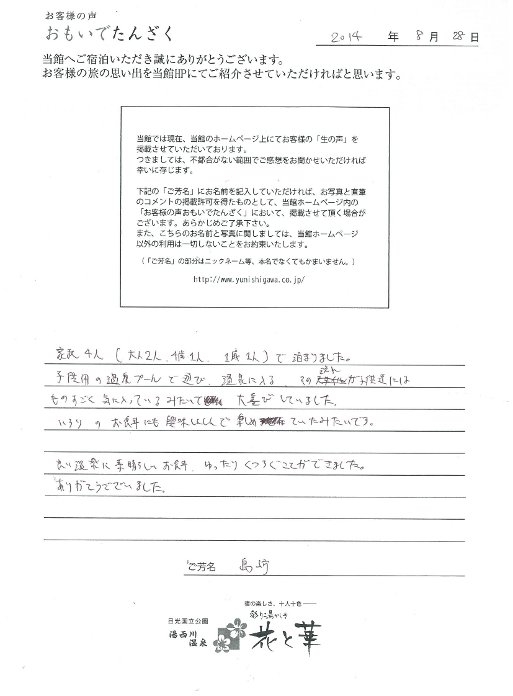 お客様の声
おもいでたんざく
2014 年 8 月 28 日
当館へご宿泊いただき誠にありがとうございます。
お客様の旅の思い出を当館HPにてご紹介させていただければと思います。
当館では現在、当館のホームページ上にてお客様の「生の声」を
掲載させていただいております。
つきましては、不都合がない範囲でご感想をお聞かせいただければ
幸いに存じます。
下記の「ご芳名」にお名前を記入していただければ、お写真と直筆
のコメントの掲載許可を得たものとして、当館ホームページ内の
「お客様の声おもいでたんざく」において、掲載させて頂く場合が
ございます。あらかじめご了承下さい。
また、こちらのお名前と写真に関しましては、当館ホームページ
以外の利用は一切しないことをお約束いたします。
（「ご芳名」の部分はニックネーム等、本名でなくてもかまいません。）
http://www.yunishigawa.co.jp/
家族4人（大人2人、4歳1人、1歳1人）で泊まりました。
子供用の温泉プールで遊び、温泉に入る、その が子供達には
ものすごく気に入っているみたいで 大喜びしていました。
いろりのお食事にも興味しんしんで楽しめ ていたみたいです。
良い温泉に素晴らしいお食事、ゆったりくつろぐことができました。
ありがとうございました。
ご芳名 島崎
宿の楽しさ、十人十色
日光国立公園
湯西川
温泉
彩り湯かしき
花と華